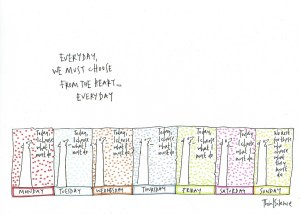 EVERYDAY,
WE MUST CHOOSE
FROM THE HEART...
EVERYDAY
Today,
I choose
what I
must do
Today,
I choose
what I
must do
Today,
I choose
what I
must do
Today,
I choose
what I
must do
Today,
I choose
what I
must do
Today,
I choose
what I
must do
We rest
for those
who
choose
what
they
must
do
MONDAY
TUESDAY
WEDNESDAY
THURSDAY
FRIDAY
SATURDAY
SUNDAY